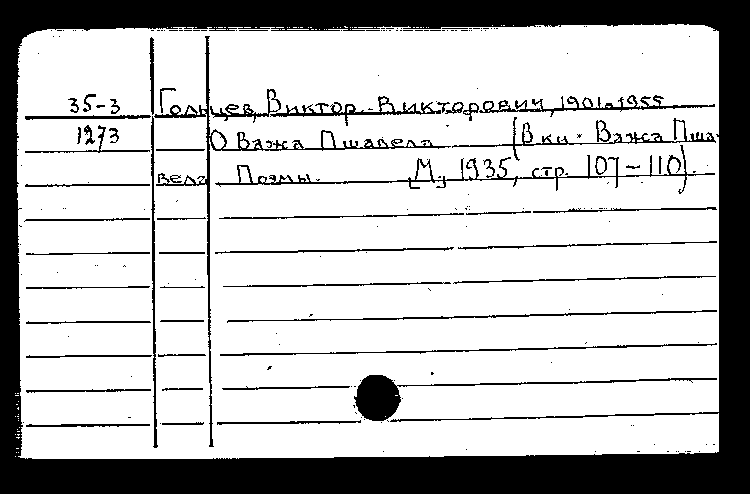 35-3 Гольцев, Виктор Викторович, 1901-1955
1273 О Важа Пшавела (В кн. Важа Пша-
вела Поэмы. [М.], 1935, стр. 107-110).